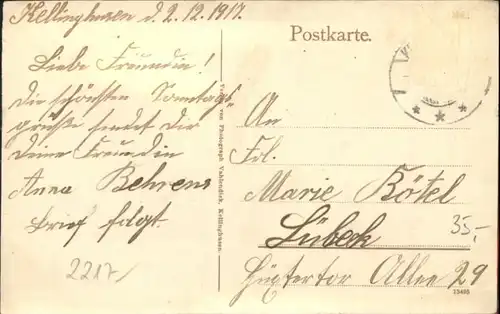 Kellinghusen d. 2.12.1917.
Postkarte.
Liebe Freundin!
Die schönsten Sonntags-
grüße sendet dir
deine Freundin
Anna Behrens
Brief folgt.
2217/
Verlag von Photograph Vahlendick, Kellinghusen.
An
Frl.
Marie Bötel
Lübeck
35,-
Hüxtertor Allee 29
13495